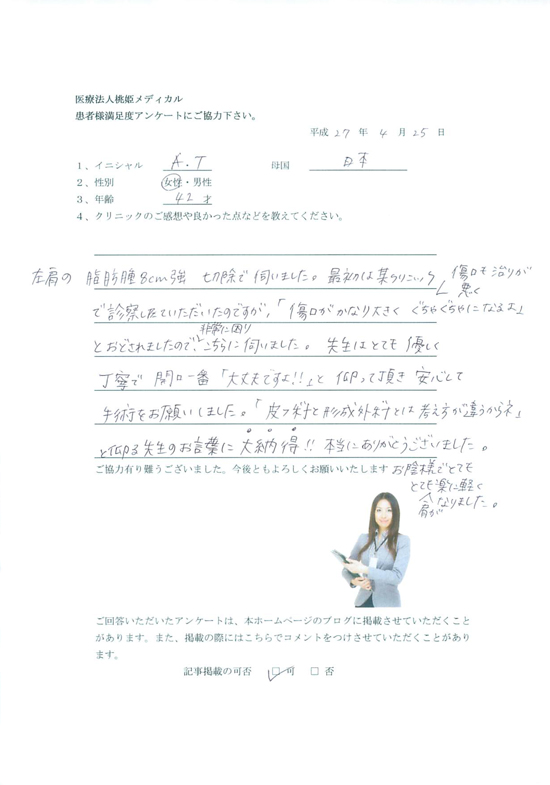 医療法人桃姫メディカル
患者様満足度アンケートにご協力下さい。
平成 27 年 4 月 25 日
1、イニシャル A.T 母国 日本
2、性別 女性・男性
3、年齢 42 才
4、クリニックのご感想や良かった点などを教えてください。
左肩の 脂肪腫8cm強 切除で伺いました。最初は某クリニック
傷口も治りが悪く
で診察していただいたのですが、「傷口がかなり大きく ぐちゃぐちゃになるよ」
非常に困り
とおどされましたので、こちらに伺いました。先生はとても優しく
丁寧で 開口一番「大丈夫ですよ!!」と仰って頂き 安心して
手術をお願いしました。「皮フ科と形成外科とは考え方が違うからネ」
と仰る先生のお言葉に大納得!! 本当にありがとうございました。
ご協力有り難うございました。今後ともよろしくお願いいたします
お陰様でとても
とても楽に軽く
肩が
なりました。
ご回答いただいたアンケートは、本ホームページのブログに掲載させていただくこと
があります。また、掲載の際にはこちらでコメントをつけさせていただくことがあり
ます。
記事掲載の可否 ☑ 可 □ 否